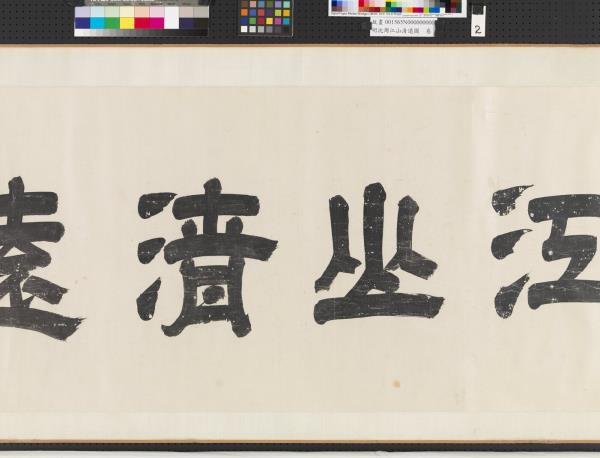 故畫 001565N000000000
明沈周江山清遠圖 卷
2
江山清遠